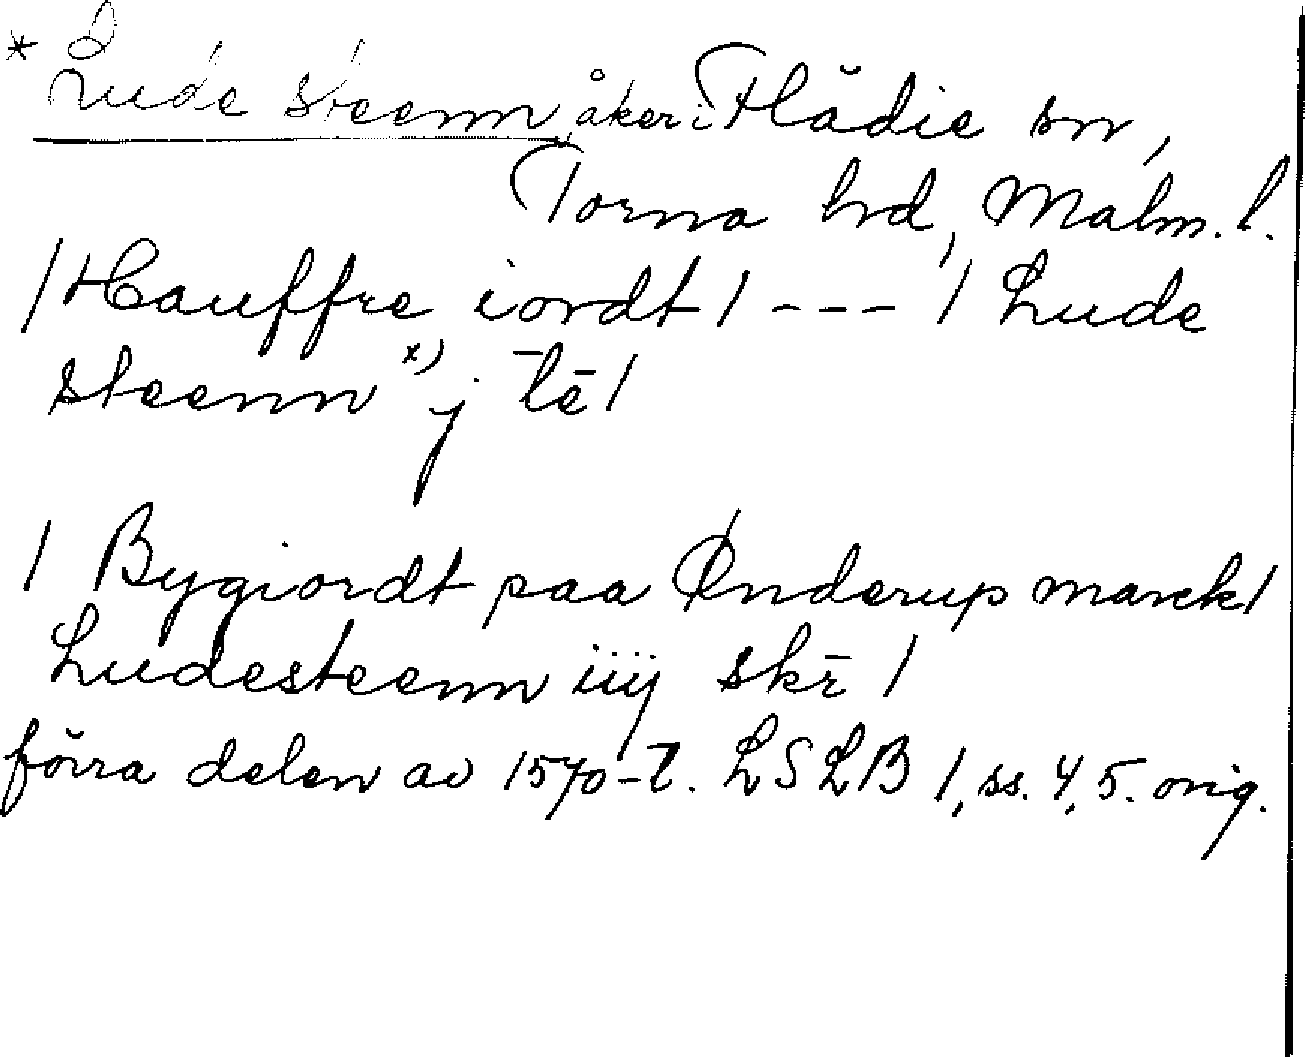 * Lude steenn, åker i Flädie sn,
Torna hd, Malm. l.
/ Hauffre iordt / --- / Lude
steenn x) j tē /
/ Bygiordt paa Ønderup marck /
Ludesteenn iiij skr̄ /
förra delen av 1570-t. LSLB 1, ss. 4, 5. orig.